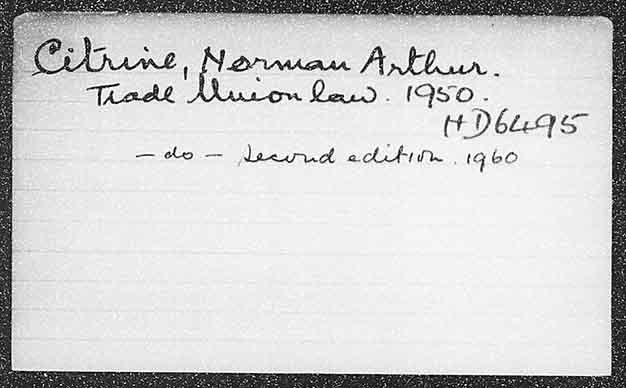 Citrine, Norman Arthur.
Trade Union law. 1950.
HD6495
- do - , second edition. 1960